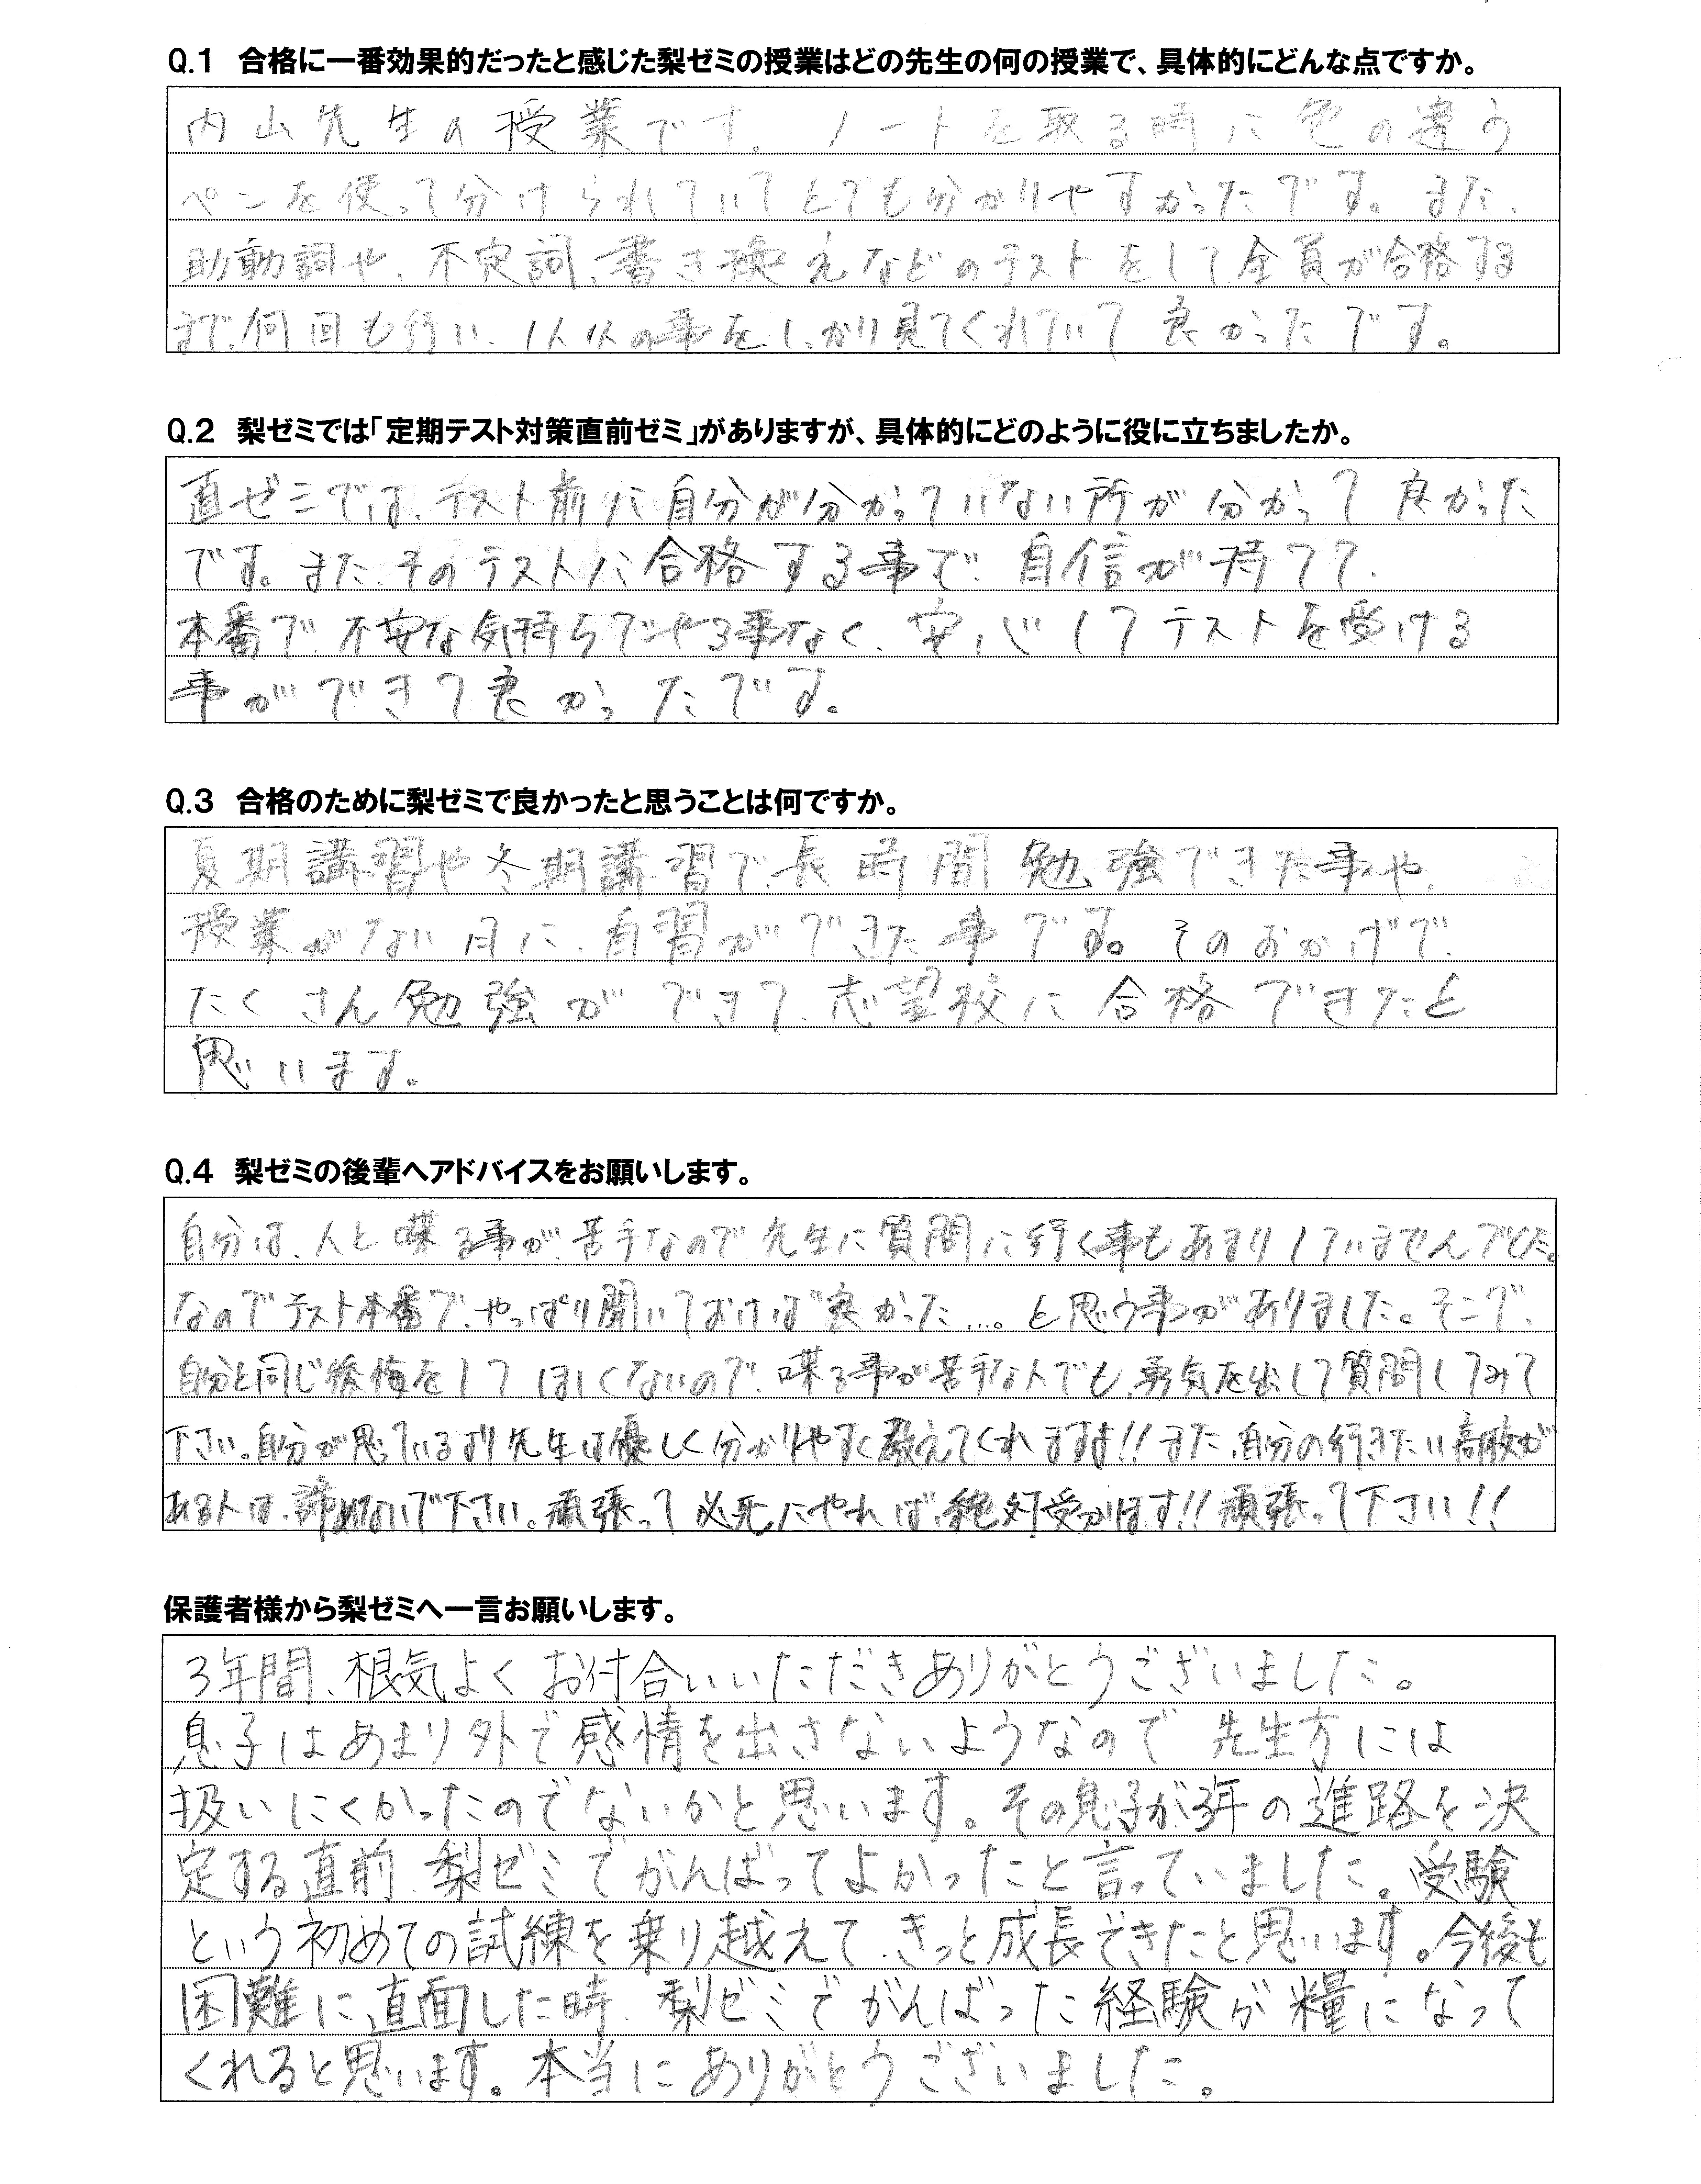 Q.1 合格に一番効果的だったと感じた梨ゼミの授業はどの先生の何の授業で、具体的にどんな点ですか。
内山先生の授業です。ノートを取る時に色の違う
ペンを使って分けられていてとても分かりやすかったです。また、
助動詞や、不定詞、書き換えなどのテストをして全員が合格する
まで、何回も行い、1人1人の事をしっかり見てくれていて良かったです。
Q.2 梨ゼミでは「定期テスト対策直前ゼミ」がありますが、具体的にどのように役に立ちましたか。
直ゼミでは、テスト前に自分が分かっていない所が分かって良かった
です。また、そのテストに合格する事で、自信が持てて、
本番で、不安な気持ちでやる事なく、安心してテストを受ける
事ができて良かったです。
Q.3 合格のために梨ゼミで良かったと思うことは何ですか。
夏期講習や冬期講習で、長時間勉強できた事や、
授業がない日に、自習ができた事です。そのおかげで、
たくさん勉強ができて、志望校に合格できたと
思います。
Q.4 梨ゼミの後輩へアドバイスをお願いします。
自分は、人と喋る事が、苦手なので、先生に質問に行く事もあまりしていませんでした。
なのでテスト本番で、やっぱり聞いておけば良かった…。と思う事がありました。そこで、
自分と同じ後悔をしてほしくないので、喋る事が苦手な人でも、勇気を出して質問してみて
下さい。自分が思っているより先生は優しく分かりやすく教えてくれますよ!!また、自分の行きたい高校が
ある人は、諦めないで下さい。頑張って必死にやれば、絶対受かります!!頑張って下さい!!
保護者様から梨ゼミへ一言お願いします。
3年間、根気よくお付合いいただきありがとうございました。
息子はあまり外で感情を出さないようなので先生方には
扱いにくかったのでないかと思います。その息子が3年の進路を決
定する直前、梨ゼミでがんばってよかったと言っていました。受験
という初めての試練を乗り越えて、きっと成長できたと思います。今後も
困難に直面した時、梨ゼミでがんばった経験が糧になって
くれると思います。本当にありがとうございました。